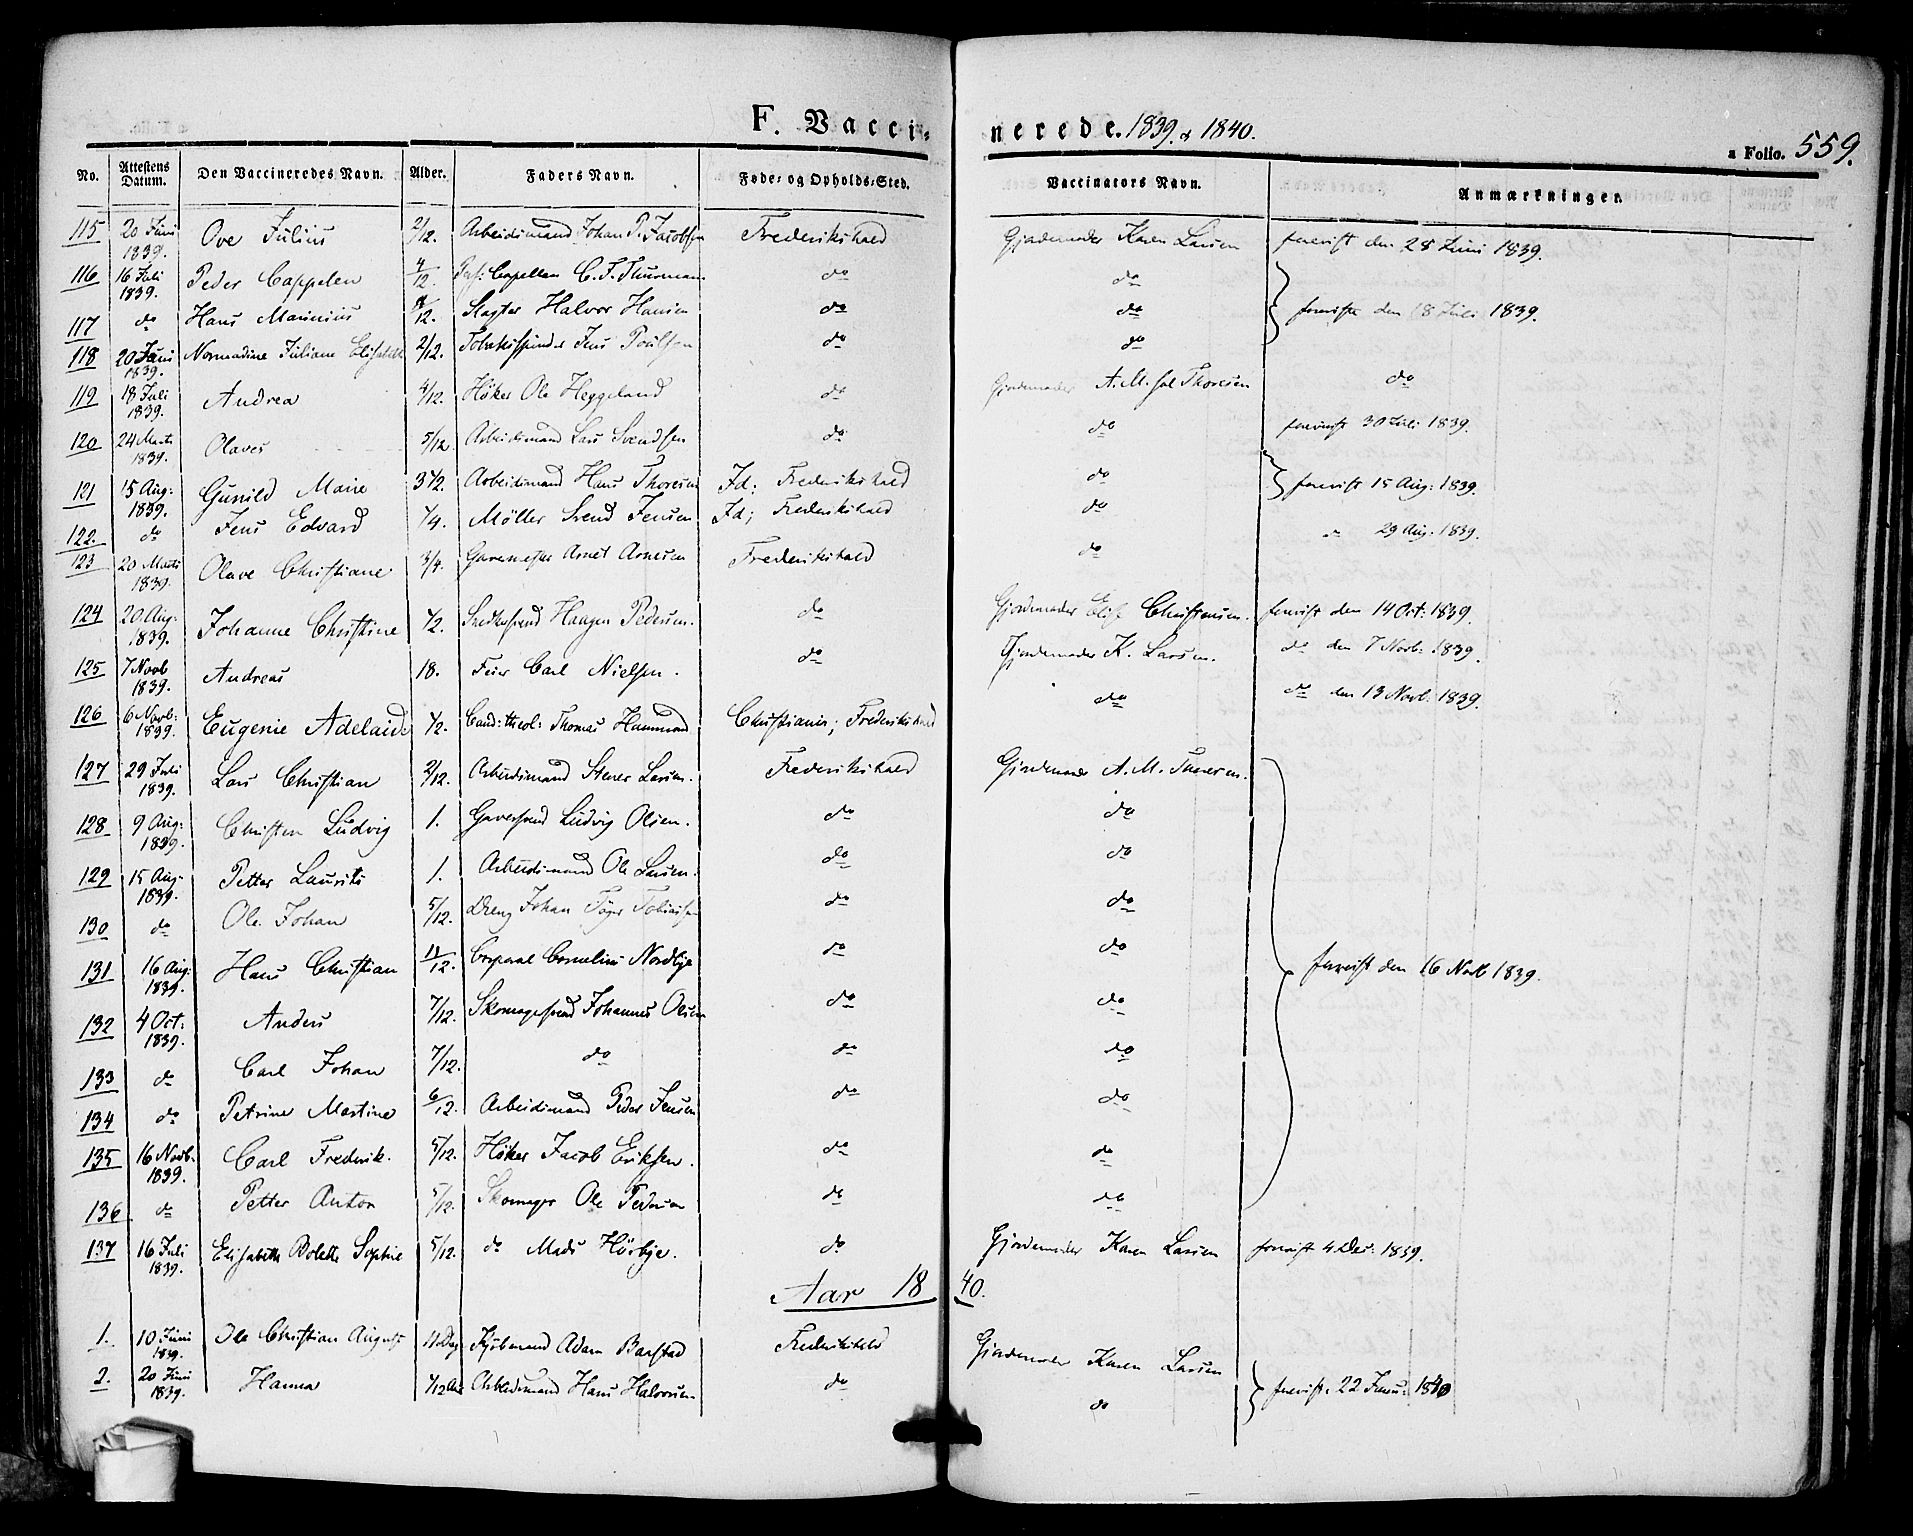 F. Vaccinerede. 1839. & 1840.
a Folio. 559.
No. Attestens Datum. Den Vaccineredes Navn. Alder. Faders Navn. Føde- og Opholds-Sted. Vaccinators Navn. Anmærkninger.
115 20 Juni 1839. Ove Julius 2/12. Arbeidsmand Johan P. Jacobsen Frederikshald Gjordemoder Karen Larsen forevist den 28 Juni 1839.
116 16 Juli 1839. Peder Cappelen 4/12. Capellan C. F. Thurmann do do
117 do Hans Marinius /12. Slagter Halvor Hansen do do forevist den 18 Juli 1839.
118 20 Juni 1839. Normandine Juliane Elisabeth 2/12. Tobaksspinder Jens Poulsen do do
119 18 Juli 1839. Andrea 4/12. Høker Ole Heggeland do Gjordemoder A. M. sal Thoresen do
120 24 Marts 1839. Olaves 5/12 Arbeidsmand Lars Svendsen do do forevist 30 Juli 1839.
121 15 Aug: 1839. Gunild Marie 3 1/2. Arbeidsmand Hans Thoresen Id: Frederikshald do forevist 15 Aug: 1839.
122. do Jens Edvard 1/4. Møller Svend Jensen Id; Frederikshald do
123 20 Marts 1839. Olave Christiane 3/4. Garvemester Arnt Arnesen Frederikshald do do 29 Aug. 1839.
124 20 Aug: 1839. Johanne Christine 1/2. Snedkersvend Haagen Pedersen. do Gjordemoder Elise Christensen. forevist den 14 Oct: 1839.
125 7 Novb 1839. Andreas 18. Feier Carl Nielsen. do Gjordemoder K. Larsen. do den 7 Novb: 1839.
126 6 Novb: 1839. Eugenie Adelaide 1/2. Cand: theol: Thomas Hammond Christiania; Frederikshald do do den 13 Novb: 1839.
127 29 Juli 1839. Lars Christian 2/12. Arbeidsmand Stener Larsen. Frederikshald Gjordemoder A. M. Thoresen.
128 9 Aug: 1839. Christen Ludvig 1. Garversvend Ludvig Olsen. do do
129 15 Aug. 1839. Petter Laurits 1. Arbeidsmand Ole Larsen. do do
130 do Ole Johan 5/12. Dreng Johan Tobiassen do do
131 16 Aug: 1839. Hans Christian 11/12. Corporal Cornelius Nordbye do do forevist den 16 Novb 1839.
132 4 Oct: 1839. Anders 7/12. Skomagersvend Johannes Olsen do do
133 do Carl Johan 7/12. do do do
134 do Petrine Martine 6/12. Arbeidsmand Peder Jensen do do
135 16 Novb. 1839. Carl Frederik. 5/12. Høker Jacob Eriksen. do do
136 do Petter Anton 5/12. Skomager Ole Pedersen do do
137 16 Juli 1839. Elisabeth Bolette Sophie 5/12. do Mads Hörbye. do Gjordemoder Karen Larsen forevist 4 Dec: 1839.
Aar 1840.
1. 10 Juni 1839. Ole Christian August 11 Dag Kjöbmand Adam Barstad Frederikshald Gjordemoder Karen Larsen
2. 20 Juni 1839. Hanna 1/12 Aar Arbeidsmand Hans Halvorsen do do forevist 22 Janu: 1840